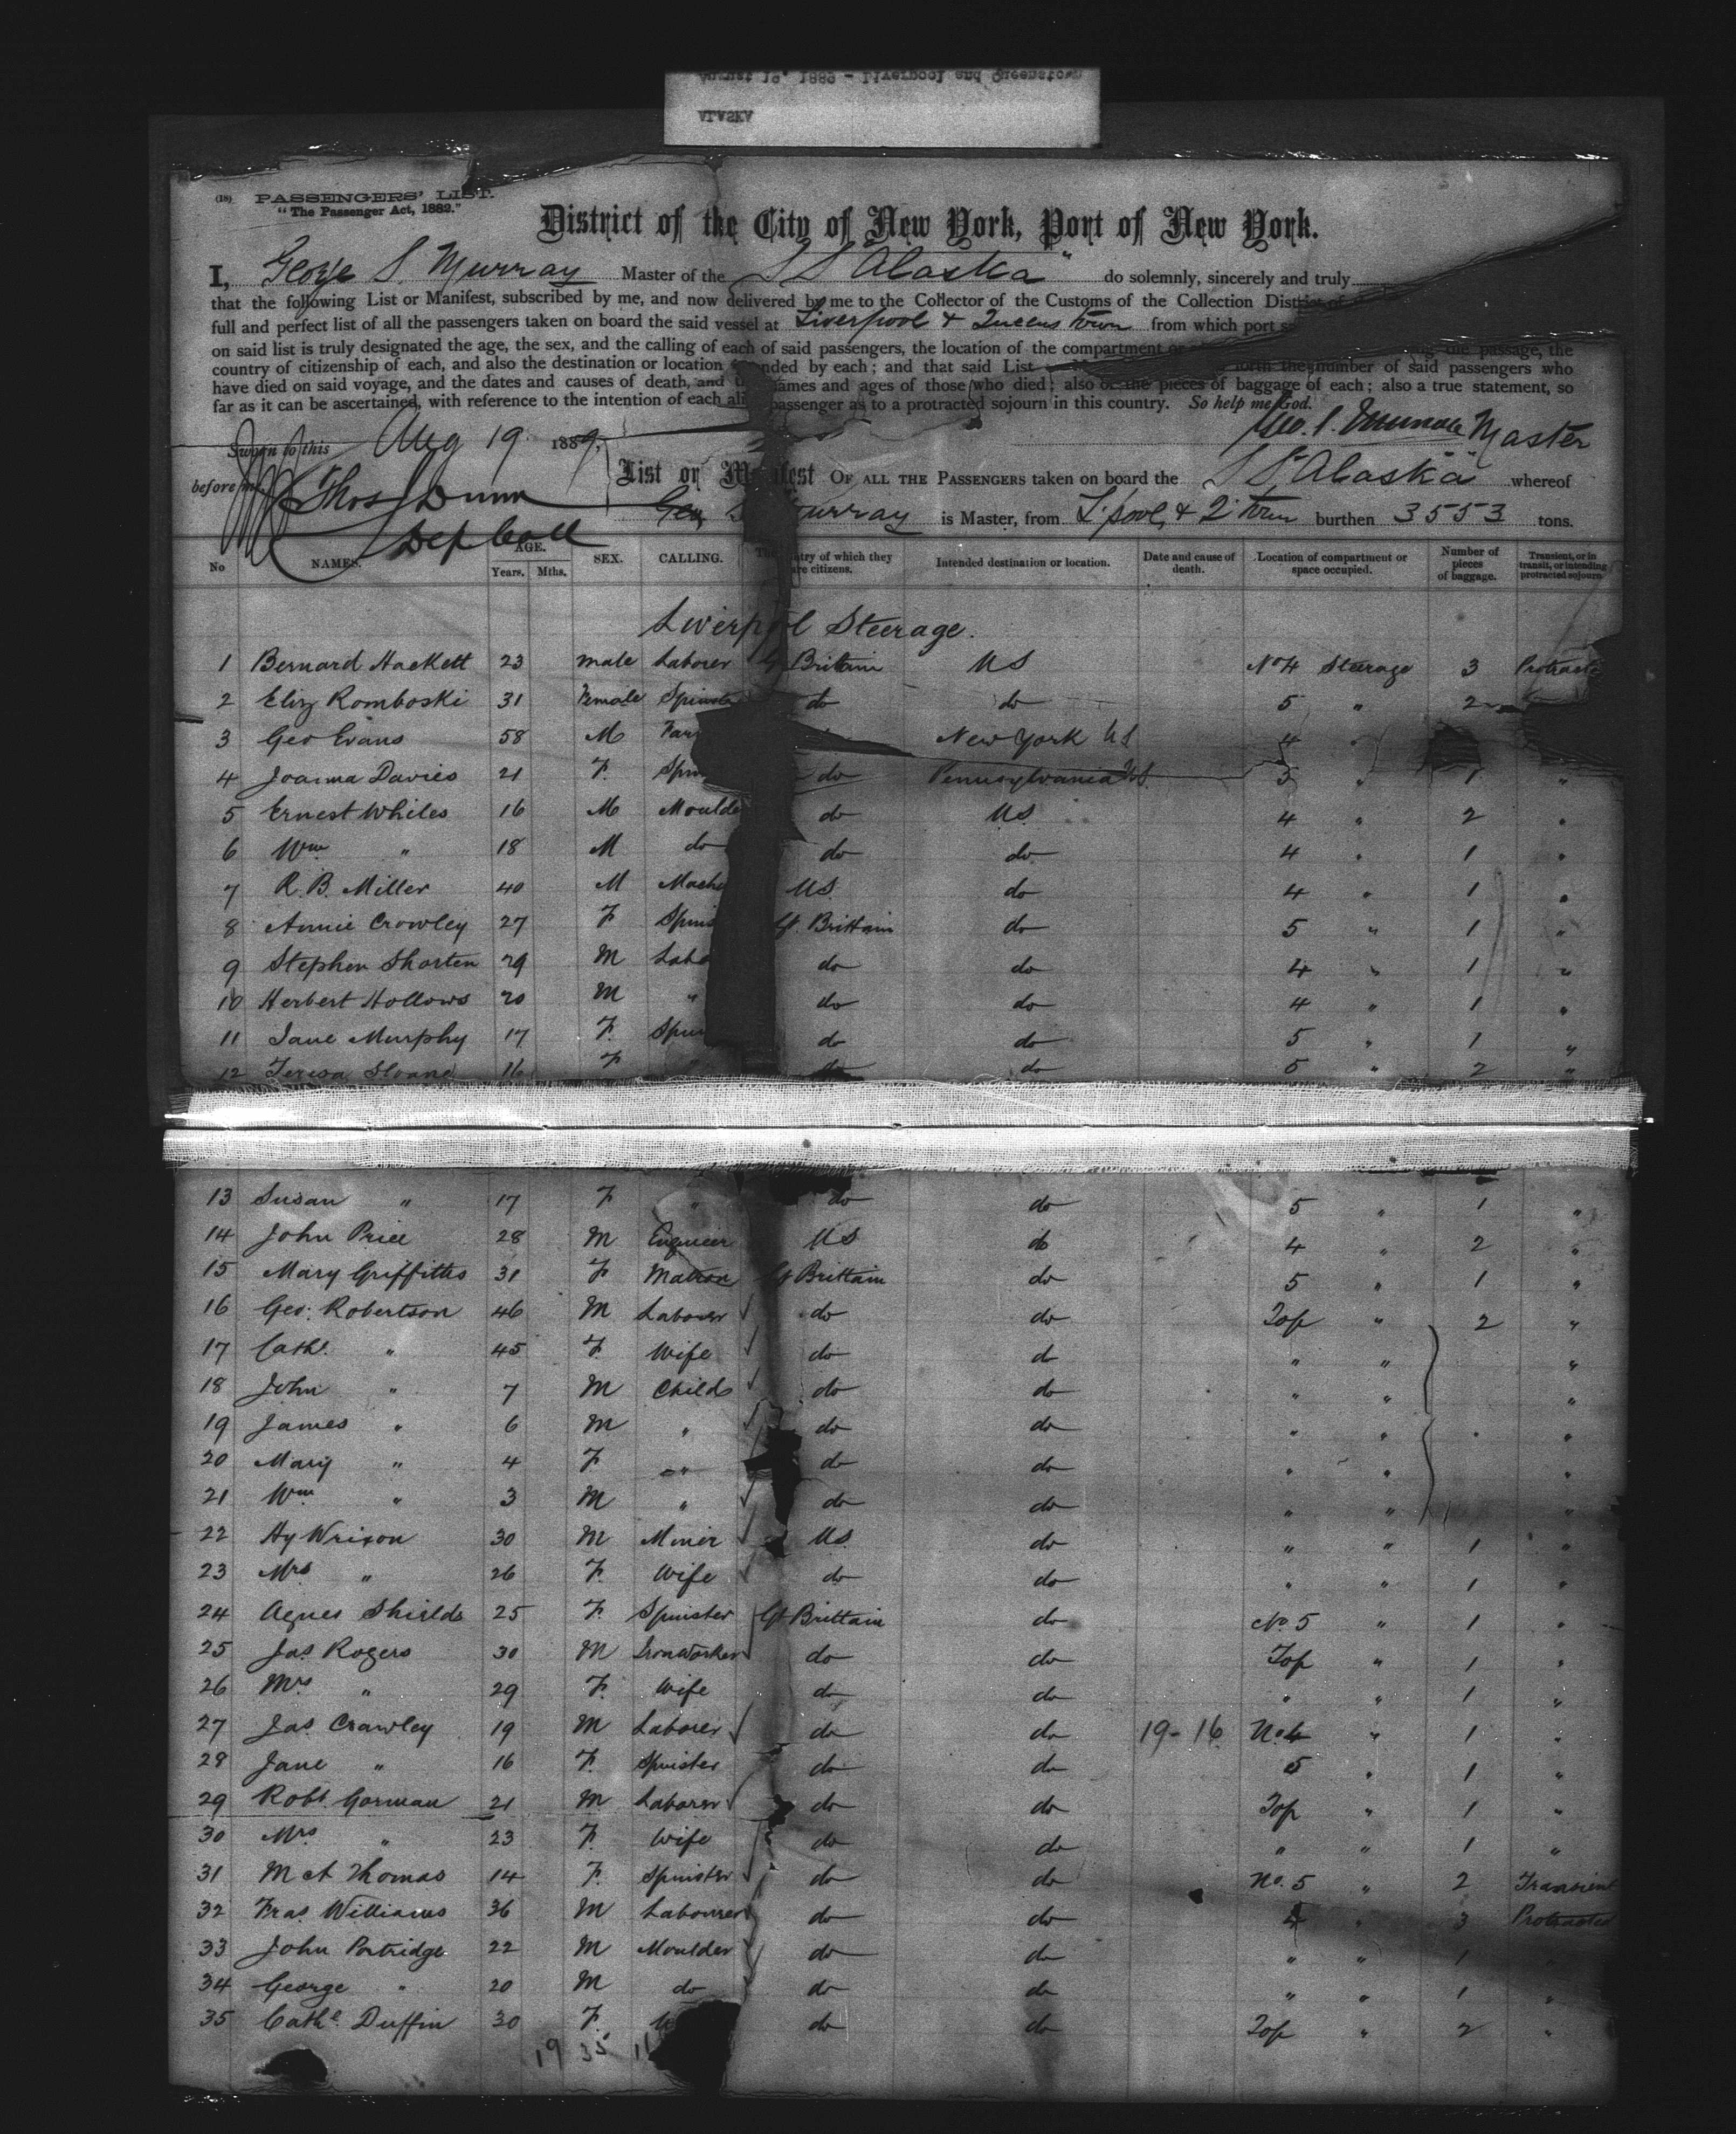 August 19, 1889 - Liverpool and Queenstown
ALASKA
(18) PASSENGERS' LIST.
"The Passenger Act, 1882."
District of the City of New York, Port of New York.
I, George S. Murray Master of the SS "Alaska" do solemnly, sincerely and truly
that the following List or Manifest, subscribed by me, and now delivered by me to the Collector of the Customs of the Collection District of
full and perfect list of all the passengers taken on board the said vessel at Liverpool & Queenstown from which port
on said list is truly designated the age, the sex, and the calling of each of said passengers, the location of the compartment the passage, the
country of citizenship of each, and also the destination or location intended by each; and that said List forth the number of said passengers who
have died on said voyage, and the dates and causes of death, and names and ages of those who died; also of the pieces of baggage of each; also a true statement, so
far as it can be ascertained, with reference to the intention of each alien passenger as to a protracted sojourn in this country. So help me God.
Geo. S. Murray Master
Sworn to this Aug 19 1889,
before me Thos Dunn
Dep Coll
List or Manifest OF ALL THE PASSENGERS taken on board the SS "Alaska" whereof
Geo S Murray is Master, from L'pool & Q'town burthen 3553 tons.
No NAMES. AGE. Years. Mths. SEX. CALLING. The country of which they are citizens. Intended destination or location. Date and cause of death. Location of compartment or space occupied. Number of pieces of baggage. Transient, or in transit, or intending protracted sojourn
Liverpool Steerage.
1 Bernard Hackett 23 male Laborer Gt Britain US No 4 Steerage 3 Protracted
2 Eliz Romboski 31 Female Spinster do do 5 " 2
3 Geo Evans 58 M Far New York US 4 "
4 Joanna Davies 21 F Spin do Pennsylvania US 3 " 1 "
5 Ernest Whiles 16 M Moulder do US 4 " 2 "
6 Wm " 18 M do do do 4 " 1 "
7 R. B. Miller 40 M Mach US do 4 " 1 "
8 Annie Crowley 27 F Spins Gt. Brittain do 5 " 1 "
9 Stephen Shorten 29 M Labo do do 4 " 1 "
10 Herbert Hollows 20 M " do do 4 " 1 "
11 Jane Murphy 17 F Spin do do 5 " 1 "
12 Teresa Sloane 16 F do do 5 " 2 "
13 Susan " 17 F " do do 5 " 1 "
14 John Price 28 M Engineer US do 4 " 2 "
15 Mary Griffiths 31 F Matron Gt Brittain do 5 " 1 "
16 Geo. Robertson 46 M Laborer do do Top " 2 "
17 Cathe. " 45 F Wife do do " " "
18 John " 7 M Child do do " " "
19 James " 6 M " do do " " "
20 Mary " 4 F " do do " " "
21 Wm " 3 M " do do " " "
22 Hy Wrixon 30 M Miner US do " " 1 "
23 Mrs " 26 F Wife do do " " 1 "
24 Agnes Shields 25 F Spinster Gt Brittain do No. 5 " 1 "
25 Jas. Rogers 30 M Ironworker do do Top " 1 "
26 Mrs " 29 F Wife do do " " 1 "
27 Jas. Crawley 19 M Laborer do do 19-16 No 4 " 1 "
28 Jane " 16 F Spinster do do 5 " 1 "
29 Robt. Gorman 21 M Laborer do do Top " 1 "
30 Mrs " 23 F Wife do do " " 1 "
31 M A Thomas 14 F Spinster do do No. 5 " 2 Transient
32 Fras. Williams 36 M Labourer do do 4 " 3 Protracted
33 John Partridge 22 M Moulder do do " " 1 "
34 George " 20 M do do do " " 1 "
35 Cathe. Duffin 30 F do do Top " 2 "
19 35 11